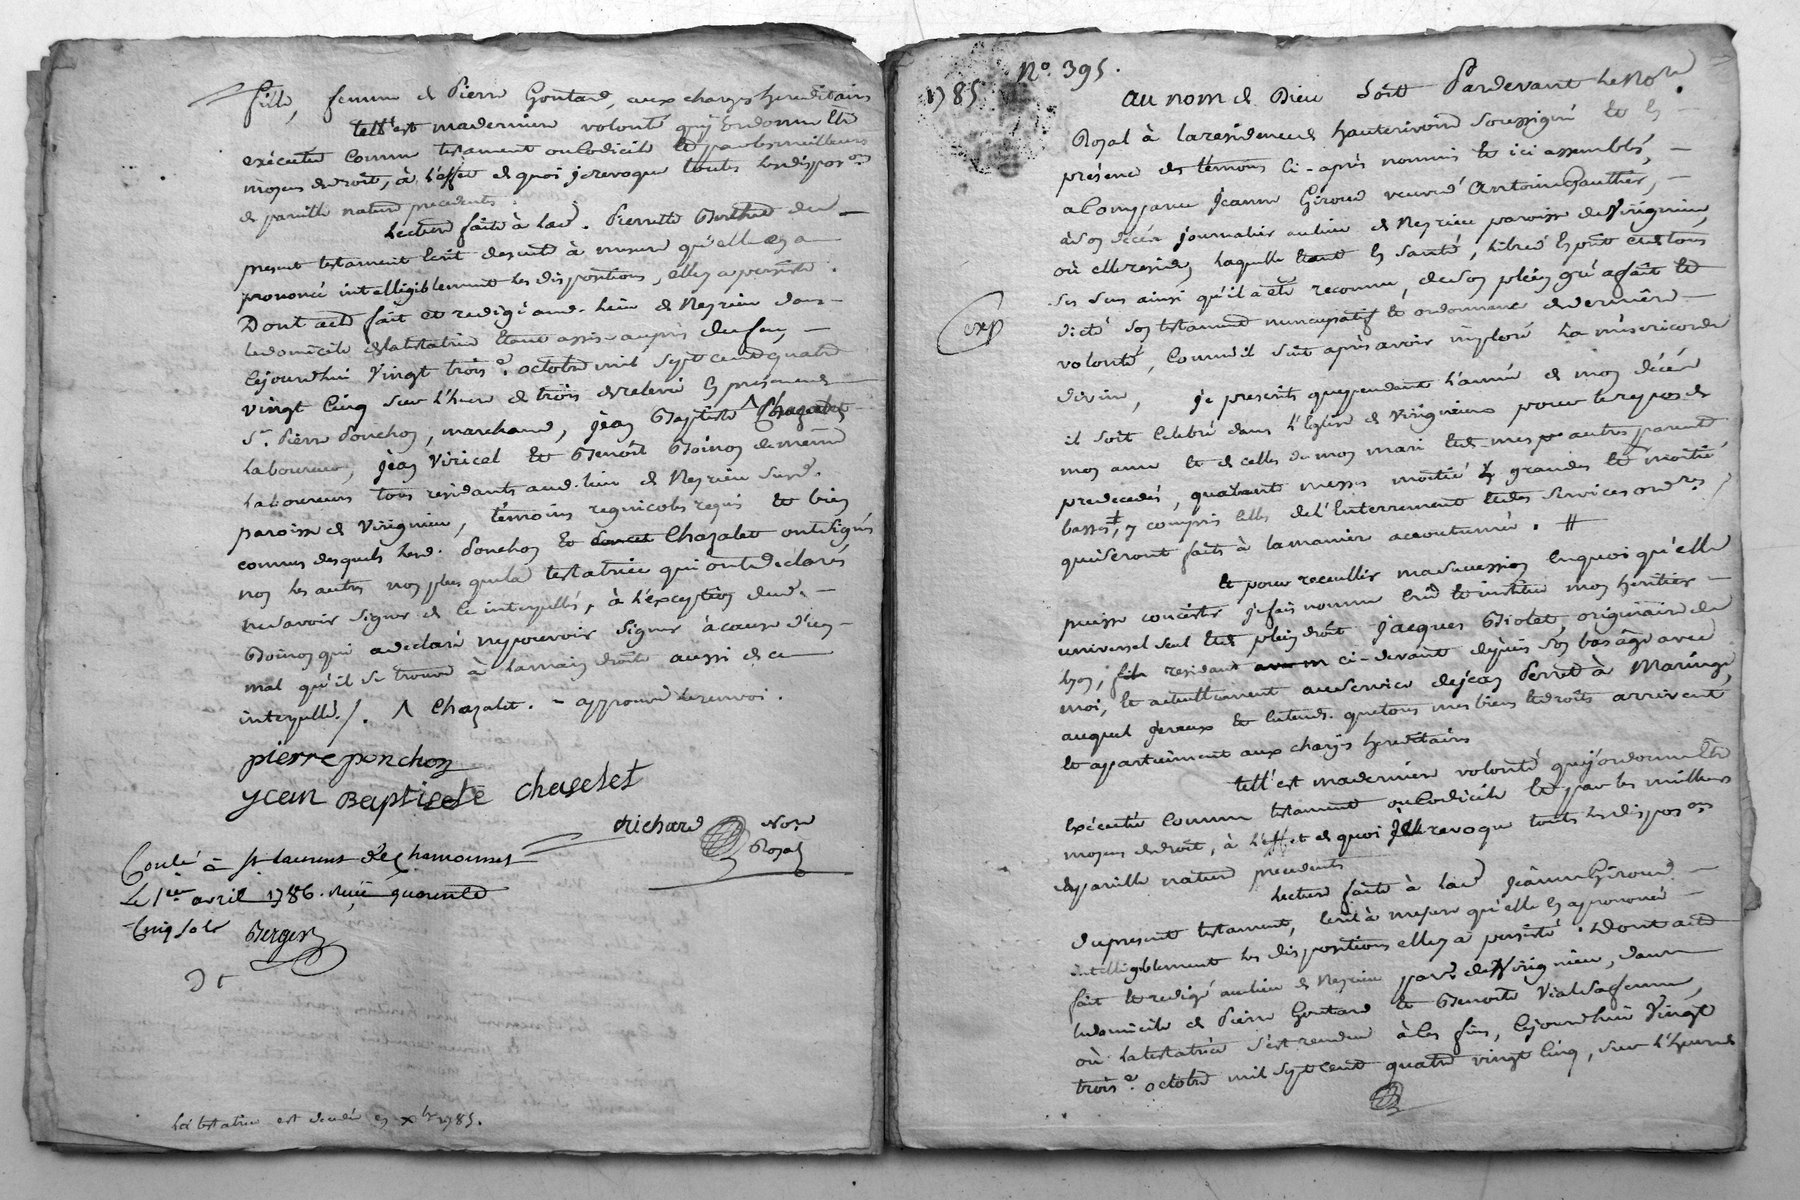 fille, femme de Pierre Goutard, aux charges hereditaires
tell'est ma derniere volonté qu'y ordonne etre
exécutée comme testament ou codicile et par les meilleurs
moyens de droit, à l'effet de quoi je revoque toutes les dispoons
de pareille nature precedents.
Lecture faite à lad. Pierrette Berthed du
present testament écrit de suite à mesure qu'elle en a
prononcé intelligiblement les dispositions, elle y a persisté.
Dont acte fait et redigé aud. lieu de Neyrieu dans
le domicile de la testatrice étant assise auprès du feu,
cejourd'hui vingt trois e. octobre mil sept cent quatre
vingt cinq sur l'heure de trois de relevée en presence de
Sr. Pierre Ponchon, marchand, jean Baptiste ^ Chazalet
laboureur, jean Viricel et Benoit Boinon de même
laboureurs tous residants aud. lieu de Neyrieu susd.
paroisse de Virignieu, témoins regnicoles requis et bien
connus desquels led. Ponchon et Chazalet ont signés
non les autres non plus que la testatrice qui ont déclarés
ne savoir signer de ce interpellés, à l'exception dud.
Boinon qui a declaré ne pouvoir signer à cause d'un
mal qu'il se trouve à la main droite aussi de ce
interpellé./. ^ Chazalet. - approuvé le renvoi.
pierre ponchon
jean Baptiste chaselet
Richard Nore
Royal
Conlé à St laurent de Chamousset
Le 1er avril 1786. Reçu quarente
Cinq sols Berger
La testatrice est decedée en Xbre 1785.
1785 No. 395.
au nom de Dieu soit Pardevant le Nore
Royal à la residence de hauterivoire soussigné et en
présence des témoins ci-après nommés et ici assemblés,
a comparue Jeanne Giroud veuve d'Antoine Gauthier,
à son décès journalier au lieu de Neyrieu paroisse de Virignieu,
où elle reside, laquelle étant en santé, libre d'esprit et de tous
ses sens ainsi qu'il a été reconnu, de son plein gré a fait et
dicté son testament nuncupatif et ordonnance de derniere
volonté, comme il suit après avoir imploré la misericorde
divine,
je prescrits que pendant l'année de mon décès
exp
il soit celebré dans l'Eglise de Virignieux pour le repos de
mon ame et de celles de mon mari et de mes autres parents
predecedés, quarante messes moitié grandes et moitié
basses, y compris celles de l'enterrement et des services ordres
qui seront faits à la maniere accoutumée. #
Et pour recueillir ma succession en quoi qu'elle
puisse consister je fais nomme crée et institue mon heritier
universel seul et de plein droit Jacques Biolet, originaire de
lyon, residant ci-devant depuis son bas âge avec
moi, et actuellement au service de jean Perret à Maringe,
auquel je veux et entends que tous mes biens et droits arrivent
et appartiennent aux charges hereditaires
tell'est ma derniere volonté que j'ordonne etre
exécutée comme testament ou codicile et par les meilleurs
moyens de droit, à l'effet de quoi je revoque toutes les dispoons
de pareille nature precedents
Lecture faite à lad. Jeanne Giroud
du present testament, écrit à mesure qu'elle en a prononcé
intelligiblement les dispositions elle y a persisté. Dont acte
fait et redigé au lieu de Neyrieu par. de Virignieu, dans
le domicile de Pierre Goutard et Benoite Vial sa femme,
où la testatrice s'est rendue à ces fins, cejourd'hui vingt
trois e. octobre mil sept cent quatre vingt cinq, sur l'heure de